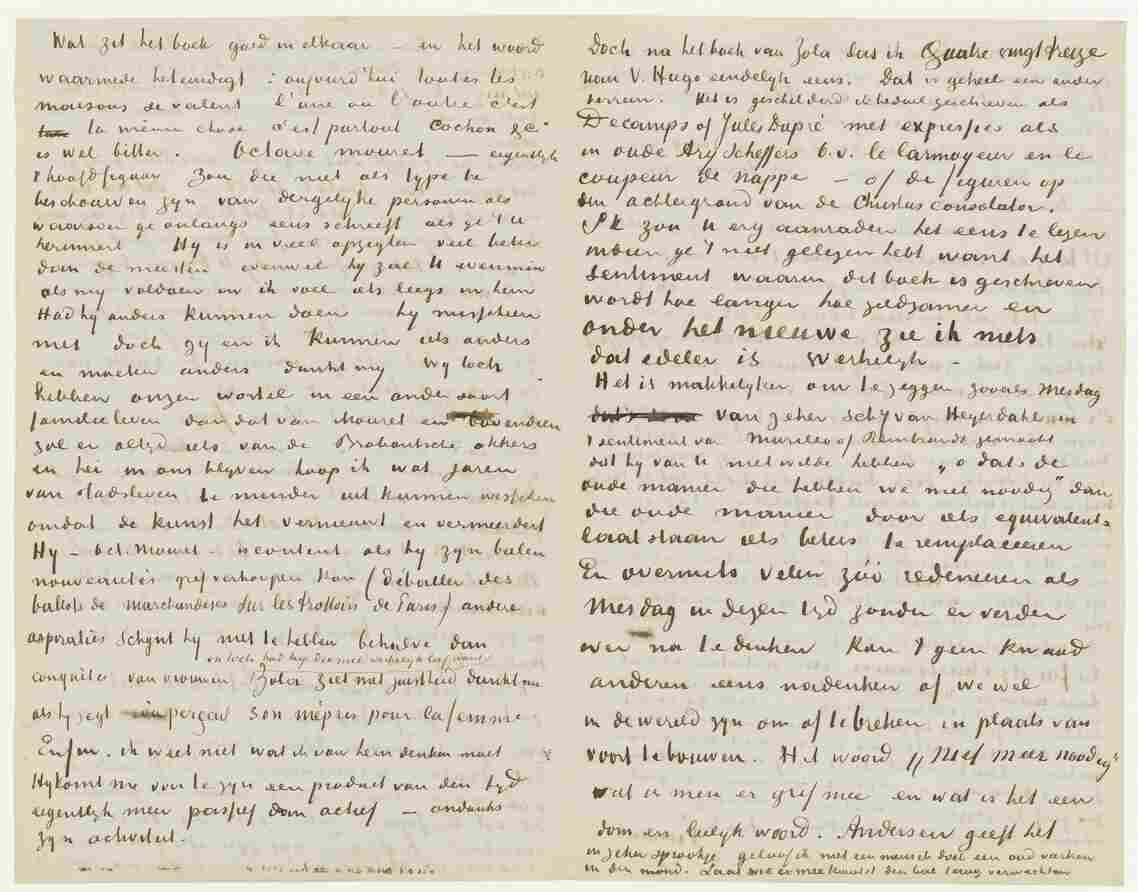 Wat zit het boek goed in elkaar – en het woord
waarmede het eindigt : aujourd'hui toutes les
maisons se valent l'une ou l'autre c'est
la même chose c'est partout Cochon & Cie
is wel bitter. Octave mouret — eigentlijk
't hoofdfiguur zou die niet als type te
beschouwen zijn van dergelijke personen als
waarvan ge onlangs eens schreeft als ge 't U
herinnert Hij is in veel opzigten veel beter
dan de meesten evenwel hij zal U evenmin
als mij voldoen en ik voel iets leegs in hem
Had hij anders kunnen doen hij misschien
niet doch gij en ik kunnen iets anders
en moeten anders dunkt mij Wij toch
hebben onzen wortel in een ander soort
familieleven dan dat van Mouret en bovendien
zal er altijd iets van de Brabantsche akkers
en hei in ons blijven hoop ik wat jaren
van stadsleven te minder uit kunnen wisschen
omdat de kunst het vernieuwt en vermeerdert
Hij – Oct. Mouret – is content als hij zijn balen
nouveautés grif verkoopen kan (déballer des
ballots de marchandises sur les trottoirs de Paris) andere
aspiraties schijnt hij niet te hebben behalve dan
en toch had hij die met werkelijk lief want
conquetes van vrouwen Zola ziet met juistheid dunkt me
als hij zegt perçait son mépres pour la femme
Enfin. ik weet niet wat ik van hem denken moet
Hij komt me voor te zijn een product van den tijd
eigentlijk meer passief dan actief – ondanks
zijn activiteit.
Doch na het boek van Zola las ik Quatre vingt treize
van V. Hugo eindelijk eens. Dat is geheel een ander
terrein. Het is geschilderd ik bedoel geschreven als
Decamps of Jules Dupré met expressies als
in oude Ary Scheffers b.v. le larmoyeur en le
coupeur de nappe – of de figuren op
den achtergrond van de Christus consolator.
Ik zou U erg aanraden het eens te lezen
indien ge 't niet gelezen hebt want het
sentiment waarin dit boek is geschreven
wordt hoe langer hoe zeldzamer en
onder het nieuwe zie ik niets
dat edeler is werkelijk –
Het is makkelijker om te zeggen, zooals Mesdag
van zeker schij van Heyerdahl in
't sentiment van Murillo of Rembrandt gemaakt
dat hij van U niet wilde hebben „o dat's de
oude manier die hebben we niet noodig" dan
die oude manier door iets equivalents
laat staan iets beters te remplaceeren
En overmits velen zóó redeneeren als
Mesdag in dezen tijd zonder er verder
over na te denken kan 't geen kwaad
anderen eens nadenken of we wel
in de wereld zijn om af te breken in plaats van
voort te bouwen. Het woord „niet meer noodig"
wat is men er grif mee en wat is het een
dom en leelijk woord. Andersen geeft het
in zeker sprookje geloof ik niet een mensch doch een oud varken
in den mond. Laat wie er mee kaatst den bal terug verwachten